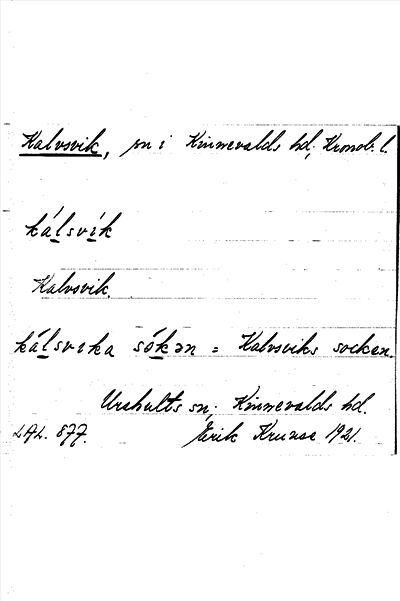 Kalvsvik, sn i Kinnevalds hd, Kronob. l.
kálsvík
Kalvsvik.
kálsvika sókən = Kalvsviks socken.
Urshults sn, Kinnevalds hd.
LAL. 877. Erik Kruuse 1921.